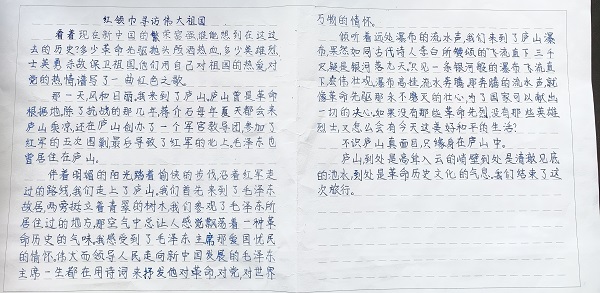 红领巾寻访伟大祖国
看着现在新中国的繁荣富强谁能想到在这过
去的历史?多少革命先驱抛头颅洒热血,多少英雄烈
士英勇杀敌保卫祖国,他们用自己对祖国的热爱,对
党的热情谱写了一曲红色之歌。
那一天,风和日丽,我来到了庐山。庐山曾是革命
根据地,除了抗战的那几年,蒋介石每年夏天都会来
庐山乘凉,还在庐山创办了一个军官教导团,参加了
红军的五次围剿,最后导致了红军的北上,毛泽东也
曾居住在庐山。
伴着明媚的阳光踏着愉快的步伐,沿着红军走
过的路线,我们走上了庐山。我们首先来到了毛泽东
故居,两旁挺立着青翠的树木,我们参观了毛泽东所
居住过的地方,那空气中总让人感觉飘荡着一种革
命历史的气味,我感受到了毛泽东主席那爱国忧民
的情怀,伟大而领导人民走向新中国发展的毛泽东
主席一生都在用诗词来抒发他对革命,对党,对世界
万物的情怀。
倾听着远处瀑布的流水声,我们来到了庐山瀑
布,果然如同古代诗人李白所赞颂的“飞流直下三千
尺,疑是银河落九天”,只见一条银河般的瀑布飞流直
下,宏伟壮观,瀑布高挂,流水奔腾,那奔腾的流水声,就
像革命先驱那永不磨灭的壮心,为了国家可以献出
一切的决心。如果没有那些革命先烈没有那些英雄
烈士,又怎么会有今天这美好和平的生活?
不识庐山真面目,只缘身在庐山中。
庐山到处是高耸入云的峭壁,到处是清澈见底
的池水,到处是革命历史文化的气息,我们结束了这
次旅行。